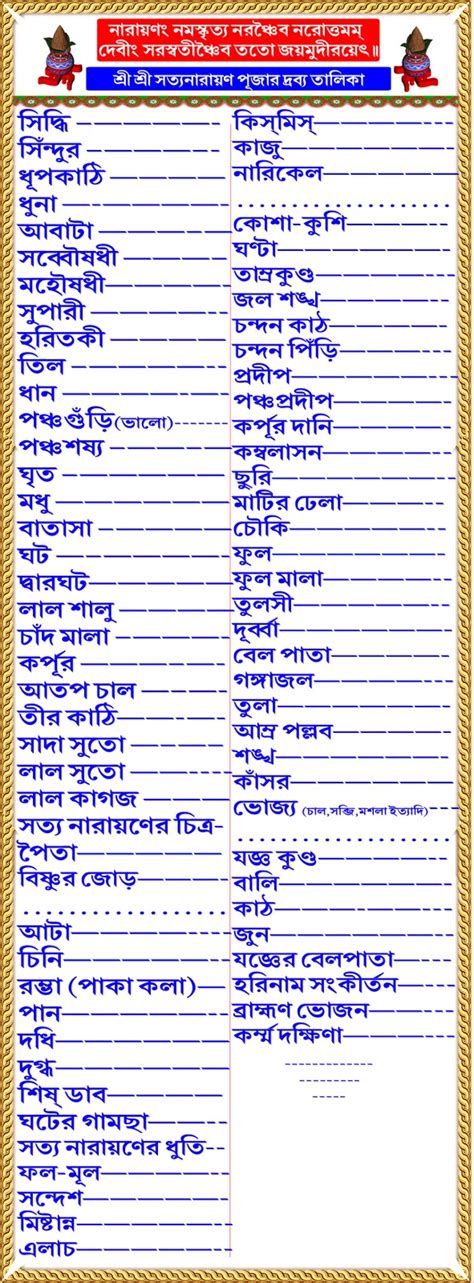 নারায়ণং নমস্কৃত্য নরঞ্চৈব নরোত্তমম্
দেবীং সরস্বতীঞ্চৈব ততো জয়মুদীরয়েৎ॥
শ্রী শ্রী সত্যনারায়ণ পূজার দ্রব্য তালিকা
সিদ্ধি
সিঁন্দুর
ধূপকাঠি
ধুনা
আবাটা
সব্বৌষধী
মহৌষধী
সুপারী
হরিতকী
তিল
ধান
পঞ্চগুঁড়ি(ভালো)
পঞ্চশষ্য
ঘৃত
মধু
বাতাসা
ঘট
দ্বারঘট
লাল শালু
চাঁদ মালা
কর্পূর
আতপ চাল
তীর কাঠি
সাদা সুতো
লাল সুতো
লাল কাগজ
সত্য নারায়ণের চিত্র-
পৈতা
বিষ্ণুর জোড়
আটা
চিনি
রম্ভা (পাকা কলা)
পান
দধি
দুগ্ধ
শিষ্ ডাব
ঘটের গামছা
সত্য নারায়ণের ধুতি--
ফল-মূল
সন্দেশ
মিষ্টান্ন
এলাচ
কিস্‌মিস্
কাজু
নারিকেল
কোশা-কুশি
ঘণ্টা
তাম্রকুণ্ড
জল শঙ্খ
চন্দন কাঠ
চন্দন পিঁড়ি
প্রদীপ
পঞ্চপ্রদীপ
কর্পূর দানি
কম্বলাসন
ছুরি
মাটির ঢেলা
চৌকি
ফুল
ফুল মালা
তুলসী
দূর্ব্বা
বেল পাতা
গঙ্গাজল
তুলা
আম্র পল্লব
শঙ্খ
কাঁসর
ভোজ্য (চাল,সব্জি,মশলা ইত্যাদি)
যজ্ঞ কুণ্ড
বালি
কাঠ
জুন
যজ্ঞের বেলপাতা
হরিনাম সংকীর্তন
ব্রাহ্মণ ভোজন
কর্ম্ম দক্ষিণা